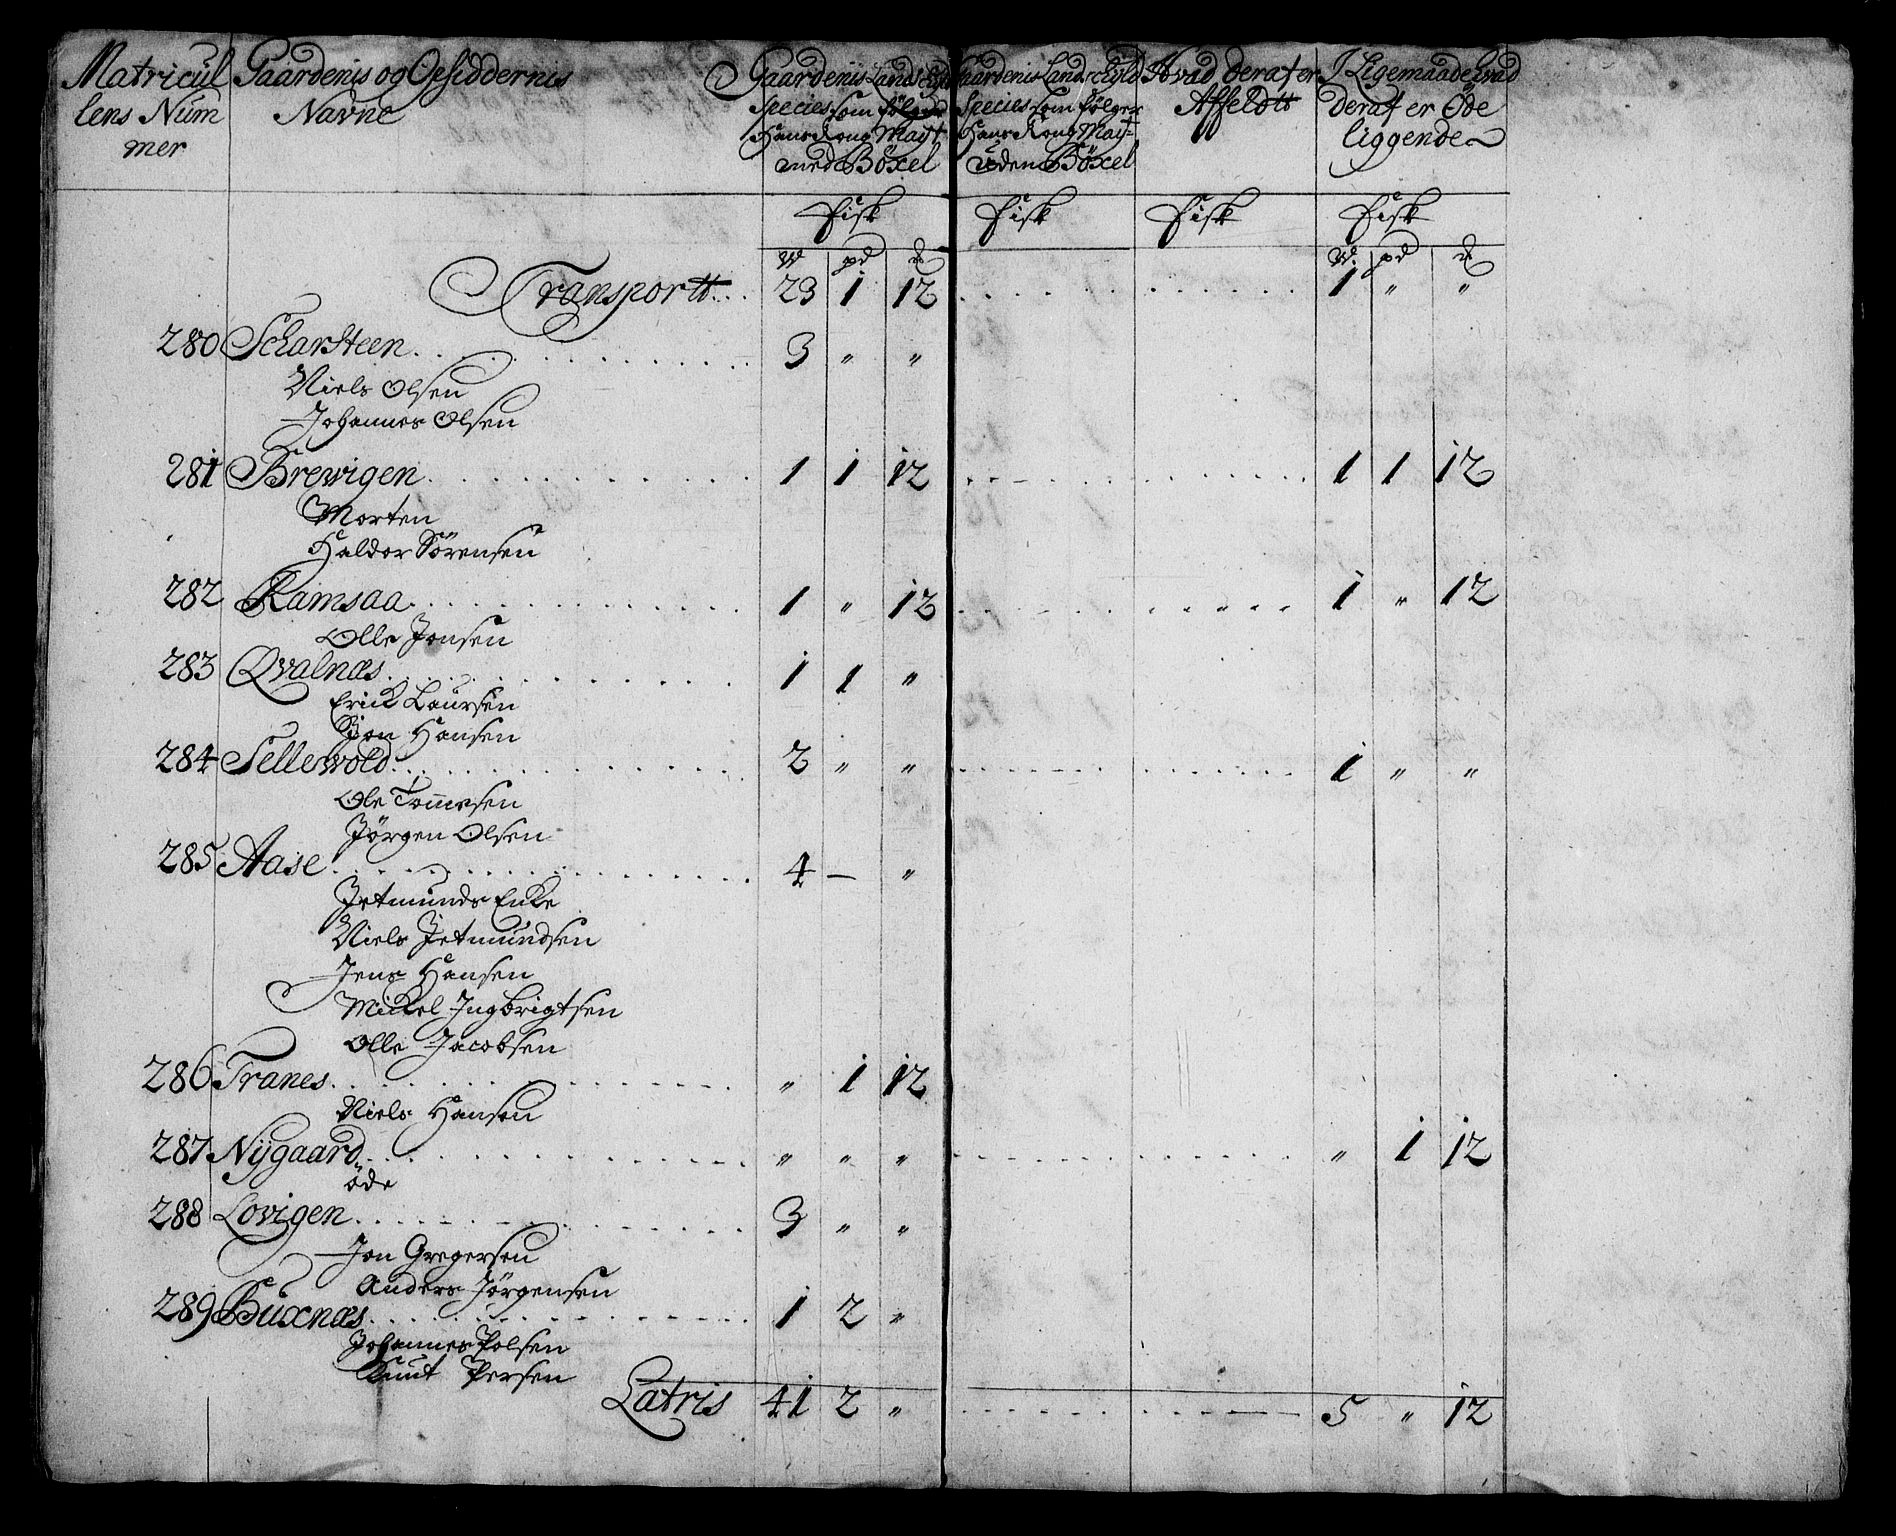 Matricul
lens Num
mer
Gaardenis og Opsiddernis
Nafne
Gaardenis Landschyld
Species som følger
Hans Kong May:t
med Böxel
Gaardenis Landschyld
Species som følger
Hans Kong May:t
uden Böxel
Hvad deraf er
Affeldtt
I Ligemaade hvad
deraf er Øde
liggende
Fisk Fisk Fisk Fisk
W pd W: pd
Transportt... 23 1 12 1 " "
280 Scharsteen 3 " "
Niels Olsen
Johannes Olsen
281 Brewigen 1 1 12 1 1 12
Morten
Haldor Sörensen
282 Ramsaa 1 " 12 1 " 12
Olle Jonsen
283 Qvalnæs 1 1 "
Erick Laursen
Hansen
284 Sellewold 2 " " 1 " "
Ole Tommesen
Jörgen Olsen
285 Aase 4 — "
Jetmunds Enke
Niels Jetmundsen
Jens Hansen
Mickel Ingbrigtsen
Olle Jacobsen
286 Tranes " 1 12
Niels Hansen
287 Nÿgaard " " " " 1 12
öde
288 Lovigen 3 " "
Jon Gregersen
Anders Jörgensen
289 Buxnæs 1 2 "
Johannes Polsen
Knut Persen
Latris 41 2 " 5 " 12